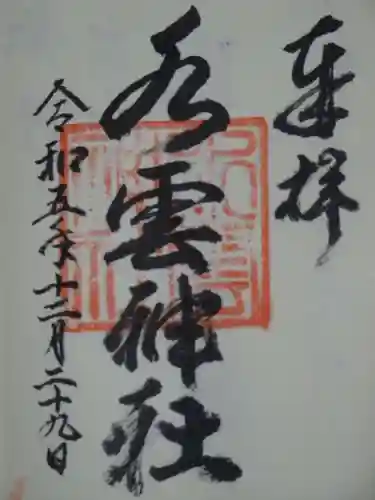 奉拝
九雲神社
令和五年十二月二十九日